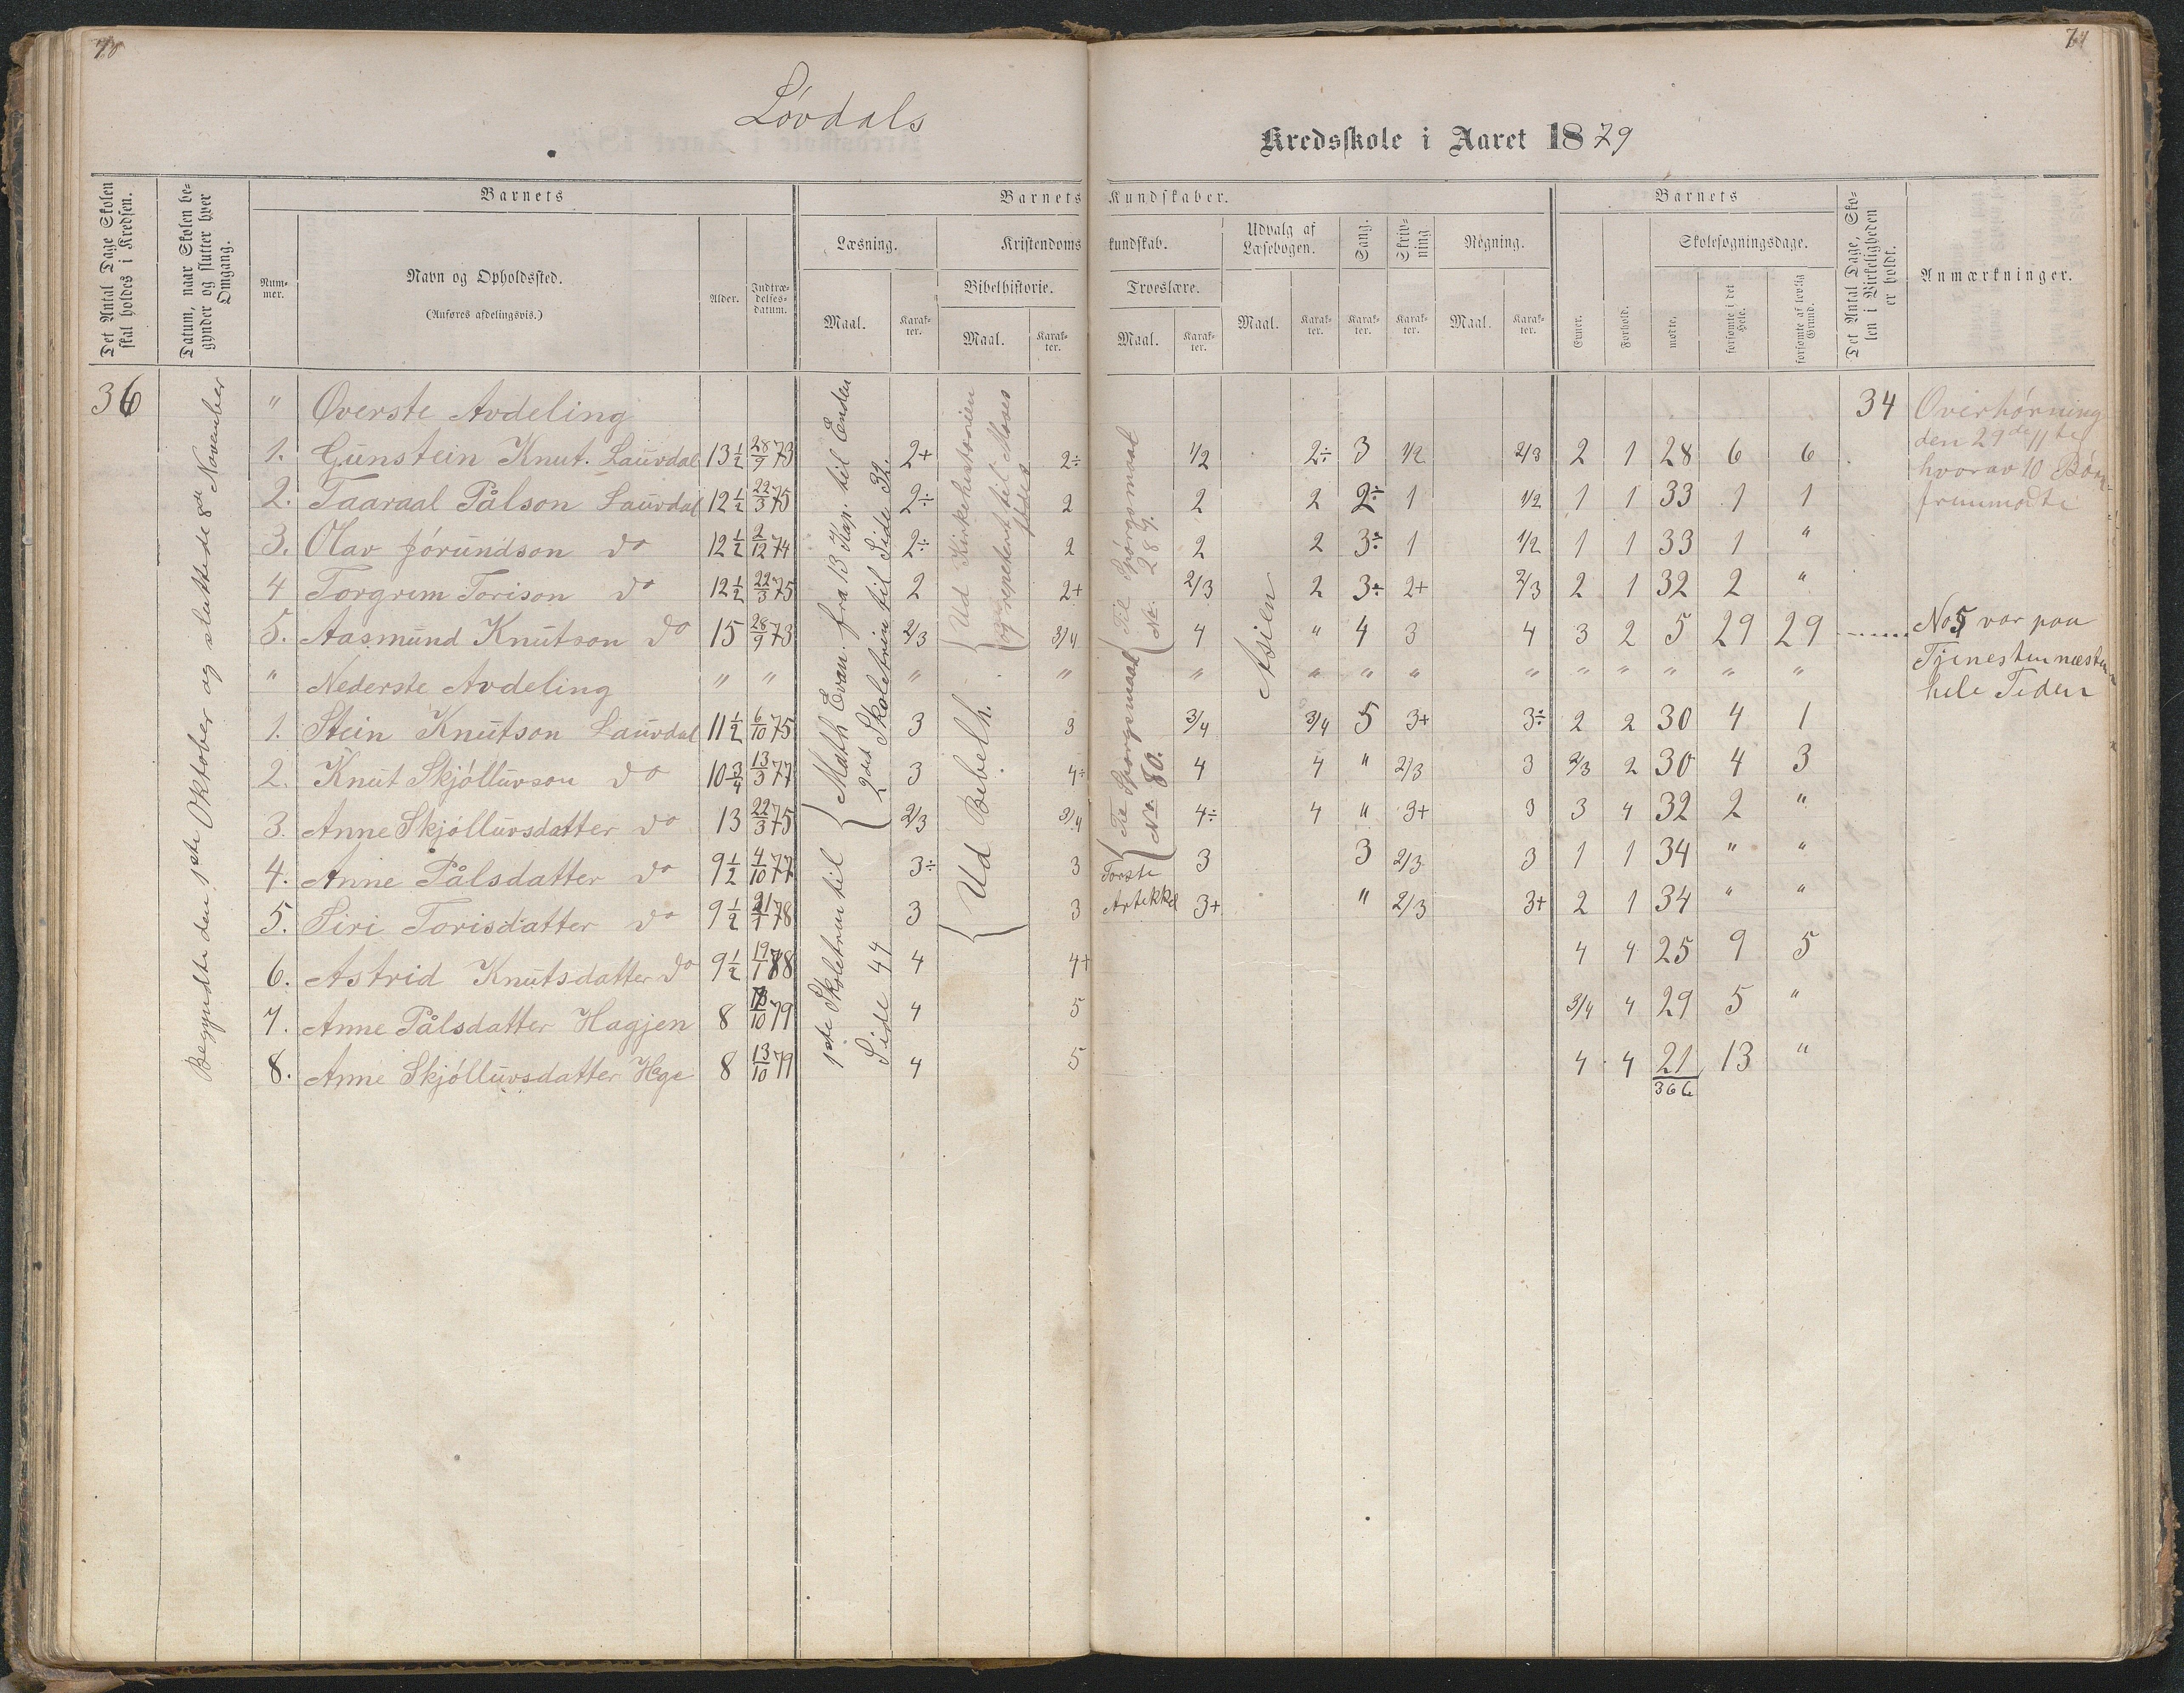 70
71
Lövdals
Kredsskole i Aaret 1879
Det Antal Dage Skolen skal holdes i Kredsen.
Datum, naar Skolen begynder og slutter hver Omgang.
Barnets
Barnets Kundskaber.
Barnets
Det Antal Dage, Skolen i Virkeligheden er holdt.
Anmærkninger.
Nummer.
Navn og Opholdssted.
(Anføres afdelingsvis.)
Alder.
Indtrædelsesdatum.
Læsning.
Kristendomskundskab.
Udvalg af Læsebogen.
Sang.
Skrivning
Regning.
Evner.
Forhold.
Skolesøgningsdage.
Bibelhistorie.
Troeslære.
Maal.
Karakter.
Maal.
Karakter.
Maal.
Karakter.
Maal.
Karakter.
Karakter.
Karakter.
Maal.
Karakter.
mødte.
forsømte i det Hele.
forsømte af lovlig Grund.
36
Begyndte den 1ste Oktober og sluttede 8de November
" Øverste Avdeling 34
1. Gunstein Knut. Lauvdal 13½ 28/9 73 2+ 2÷ 1/2 2÷ 3 1/2 2/3 2 1 28 6 6
2. Taaraal Pålson Lauvdal 12½ 22/3 75 2÷ 2 2 2 2÷ 1 1/2 1 1 33 1 1
3. Olav Jörundson do 12½ 2/12 74 2÷ 2 2 2 3÷ 1 1/2 1 1 33 1 "
4 Torgrim Torison do 12½ 22/3 75 2 2+ 2/3 2 3÷ 2+ 2/3 2 1 32 2 "
5. Aasmund Knutson do 15 28/9 73 2/3 3/4 4 " 4 3 4 3 2 5 29 29
" Nederste Avdeling " " " " " " " " " " " " " "
1. Stein Knutson Lauvdal 11½ 6/10 75 3 3 3/4 3/4 5 3+ 3÷ 2 2 30 4 1
2. Knut Skjölluvson do 10¾ 13/3 77 3 4÷ 4 4 " 2/3 3 2/3 2 30 4 3
3. Anne Skjölluvsdatter do 13 22/3 75 2/3 3/4 4÷ 4 " 3+ 3 3 4 32 2 "
4. Anne Pålsdatter do 9½ 4/10 77 3÷ 3 3 3 2/3 3 1 1 34 " "
5. Siri Torisdatter do 9½ 21/1 78 3 3 3+ " 2/3 3+ 2 1 34 " "
6. Astrid Knutsdatter do 9½ 19/1 78 4 4+ 4 4 25 9 5
7. Anne Pålsdatter Hagjen 8 13/10 79 4 5 3/4 4 29 5 "
8. Anne Skjölluvsdatter Hage 8 13/10 79 4 5 4 4 21 13 "
366
Math Evan. fra 13 Kap. til Enden
2det Skoletrin til Side 32.
1ste Skoletrin til
Side 44
Ud Kirkehistorien
og repeteret til Moses
Ud Bibelh.
Til Spörgsmaal
No. 287.
Til Spörgsmaal
No. 80.
Förste
Artikkel
Asien
Overhörning
den 29de/11te
hvorav 10 Börn
fremmödte
No 5 var paa
Tjenesten næsten
hele Tiden